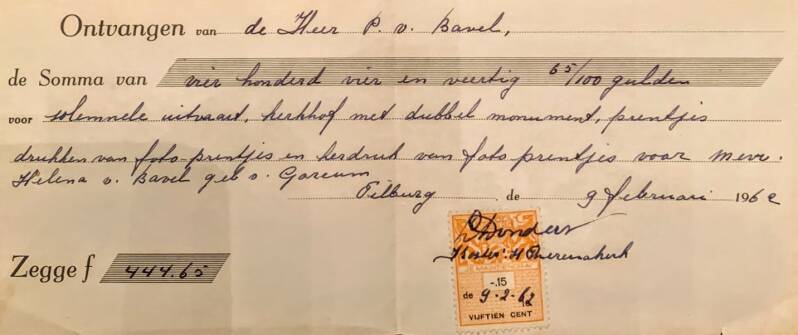 Ontvangen van de Heer P. v. Bavel,
de Somma van vier honderd vier en veertig 65/100 gulden
voor solemnele uitvaart, kerkhof met dubbel monument, prentjes
drukken van foto-prentjes en herdruk van foto prentjes voor Mevr.
Helena v. Bavel geb v. Gorcum
Tilburg, de 9 februari 1962
Donders
Koster H Theresiakerk
Zegge f 444.65
-.15
de 9-2-62
VIJFTIEN CENT